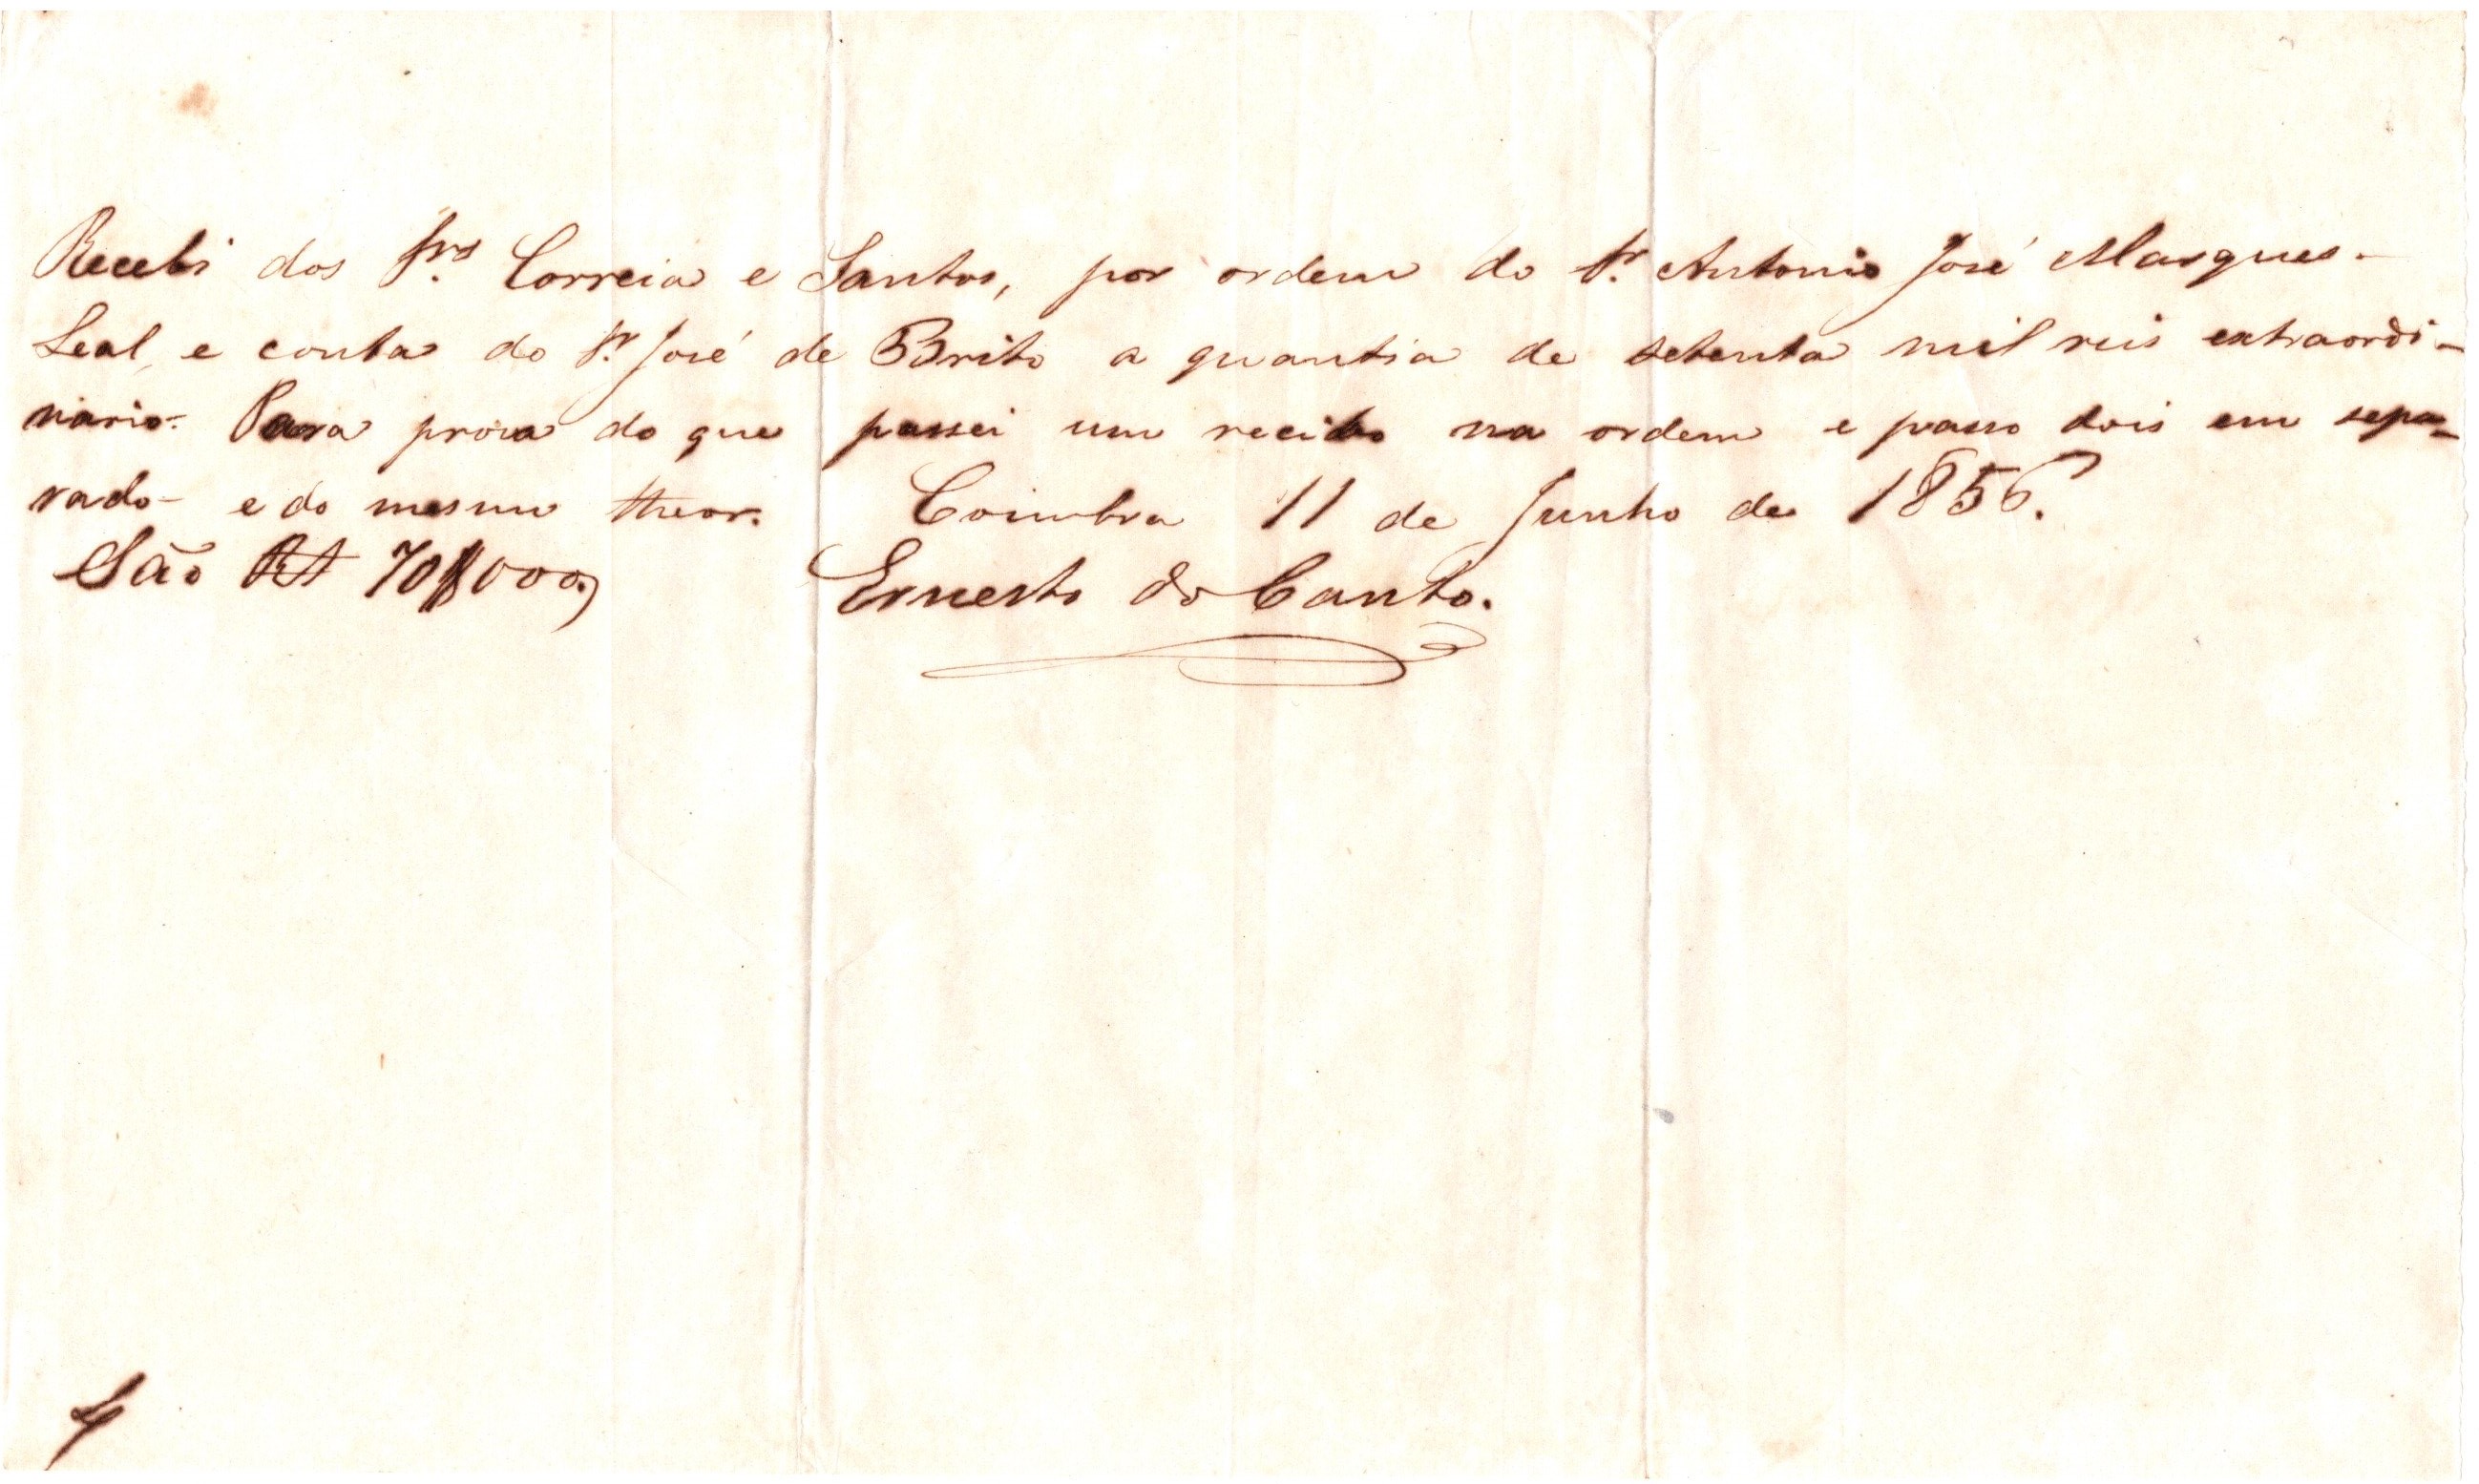 Recebi dos Srs. Correia e Santos, por ordem do Sr. Antonio José Marques
Leal, e conta do Sr. José de Brito a quantia de setenta mil reis extraordi-
nario. Para prova do que passei um recibo na ordem e passo dois em sepa-
rado e do mesmo theor. Coimbra 11 de Junho de 1856.
São Rs 70$000, Ernesto do Canto.